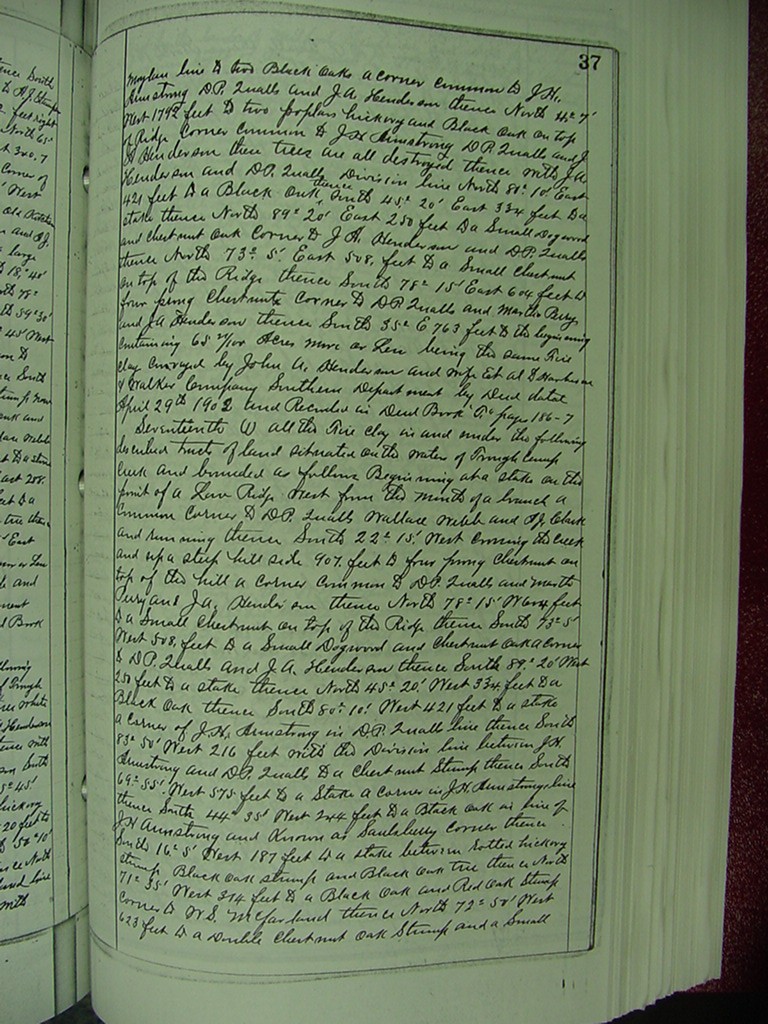 37
line to two Black Oaks a corner common to J.H.
Armstrong D.P. Qualls and J.A. Henderson thence North 42° 7'
West 1792 feet to two poplars hickory and Black Oak on top
of Ridge Corner Common to J.H. Armstrong D.P. Qualls and J.
A Henderson these trees are all destroyed thence with J.A.
Henderson and D.P. Qualls Division line North 80° 10' East
421 feet to a Black Oak thence South 45° 20' East 334 feet to a
stake thence North 89° 20' East 250 feet to a Small Dogwood
and Chestnut Oak Corner to J.A. Henderson and D.P. Qualls
thence North 73° 5' East 508. feet to a Small Chestnut
on top of the Ridge thence South 78° 15' East 604 feet to
four prong Chestnuts Corner to D.P. Qualls and Martha Perry
and J.A Henderson thence South 35° E 763 feet to the beginning
Containing 65 /100 Acres more or Less being the same Fire
Clay conveyed by John A. Henderson and wife Et al to Harbison
& Walker Company Southern Department by Deed dated
April 29th 1902 and Recorded in Deed Book pages 186-7
Seventeenth All the Fire Clay in and under the following
described tracts of land situated on the waters of Trough Camp
Creek and bounded as follows Beginning at a stake on the
point of a Low Ridge West from the mouth of a branch a
Common Corner to D.P. Qualls Wallace Webb and A.J. Clark
and running thence South 22° 15' West Crossing the Creek
and up a steep hill side 907. feet to four prong Chestnut on
top of the hill a Corner Common to D.P. Qualls and Martha
Perry and J.A. Henderson thence North 78° 15' W 604 feet
to a Small Chestnut on top of the Ridge thence South 73° 5'
West 508. feet to a Small Dogwood and Chestnut Oak a Corner
to D.P. Qualls and J.A. Henderson thence South 89° 20' West
250 feet to a stake thence North 45° 20' West 334 feet to a
Black Oak thence South 80° 10' West 421 feet to a stake
a Corner of J.H. Armstrong in D.P. Qualls line thence South
83° 50' West 216 feet with the Division line between J.H.
Armstrong and D.P. Qualls to a Chestnut Stump thence South
69° 55' West 575 feet to a Stake a Corner in J.H Armstrongs line
thence South 44° 35' West 244 feet to a Black Oak in line of
J.H Armstrong and Known as Saulsberry Corner thence
South 16° 5' West 187 feet to a stake between rotted hickory
stump Black Oak stump and Black Oak tree thence North
71° 35' West 314 feet to a Black Oak and Red Oak Stump
Corner to W.S. McFarland thence North 72° 50' West
623 feet to a Double Chestnut Oak Stump and a Small